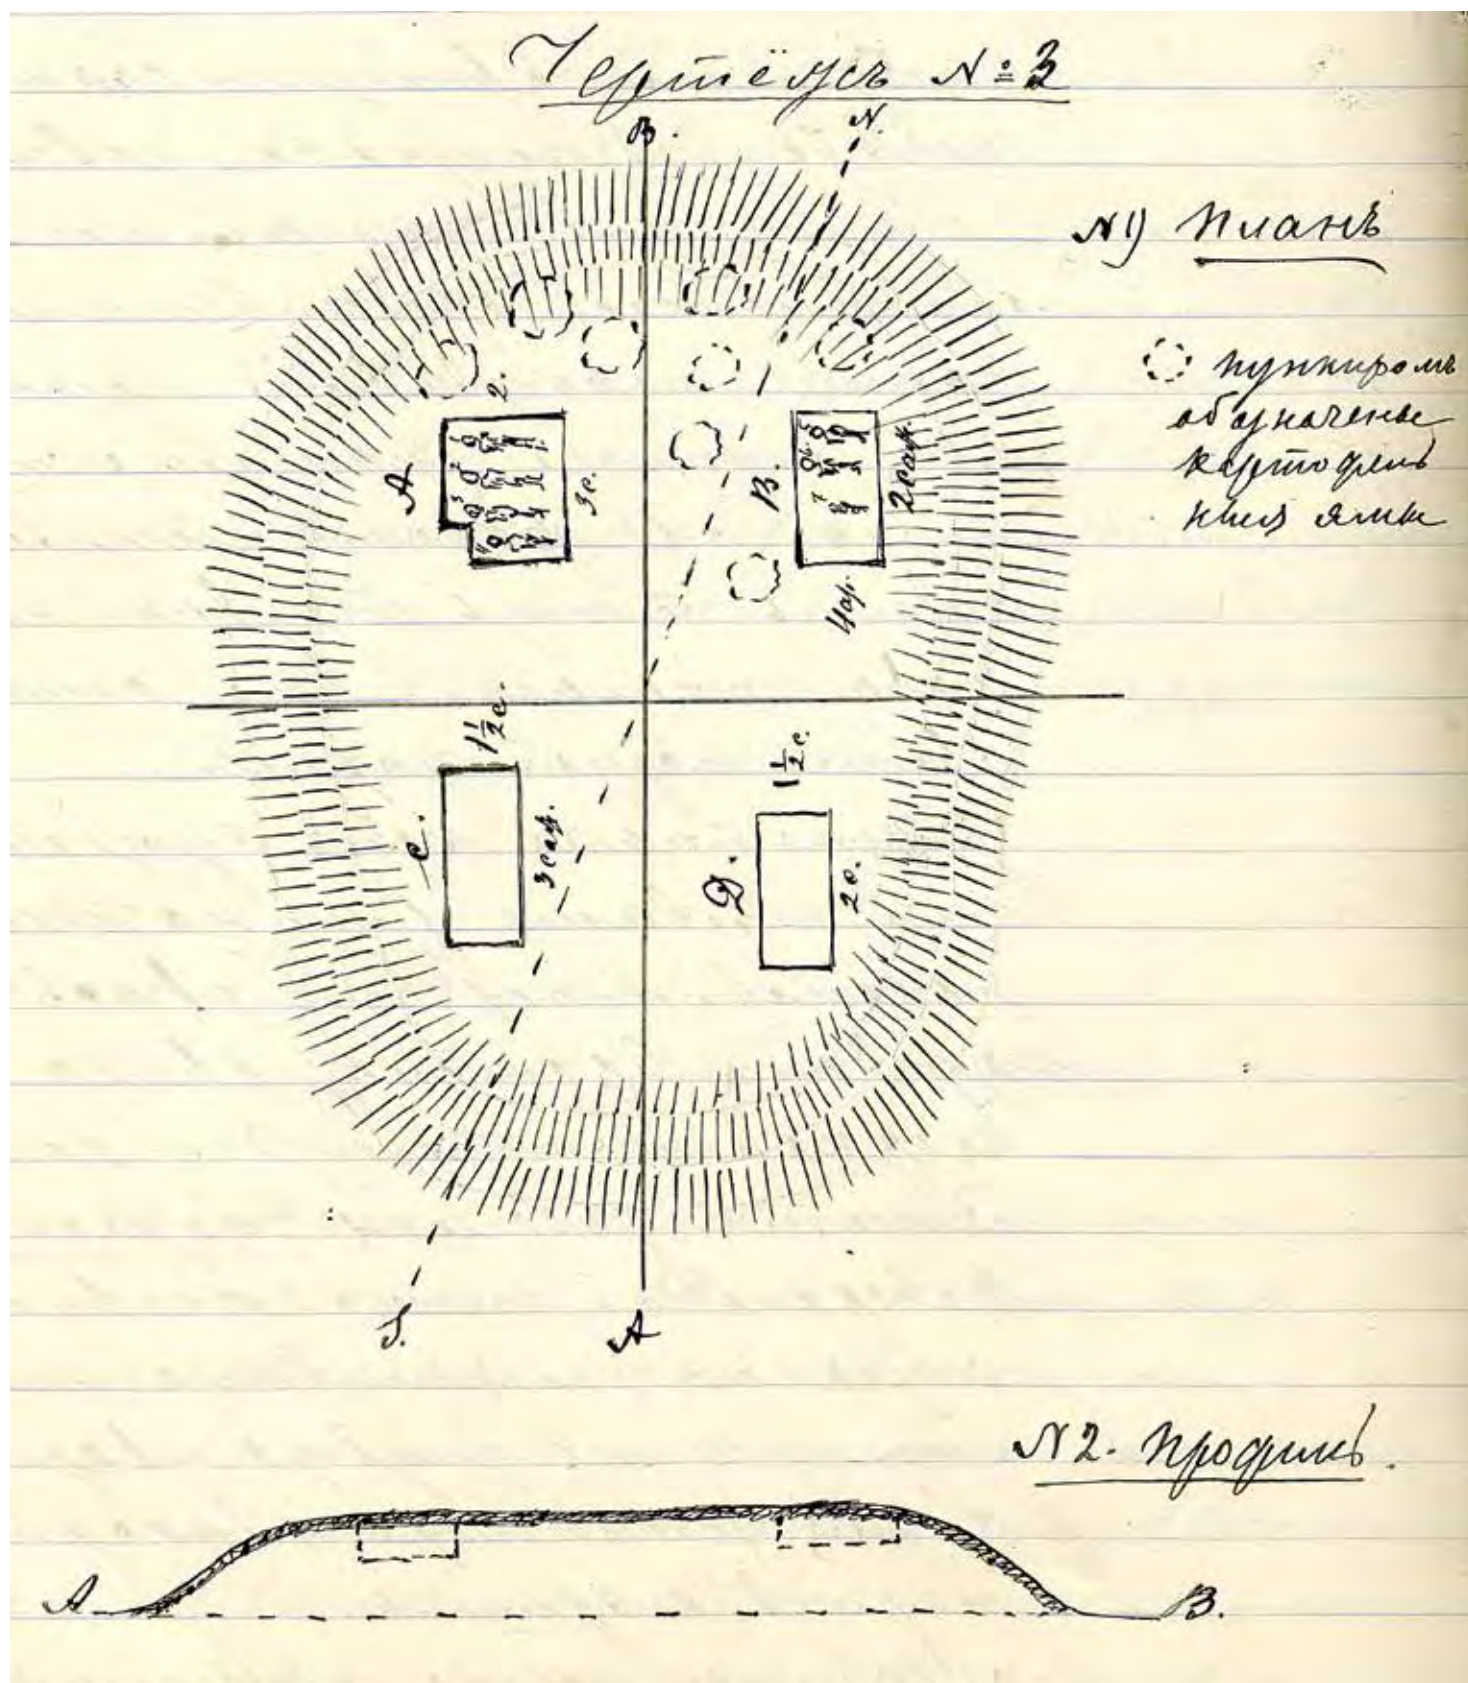 Чертёжъ №3
В.
N.
N1) Планъ
пунктиромъ
обозначены
картофель
ныя ямы
2.
А
1
2
3
4
3с.
В.
5
6
7
2 саж.
4 ар.
1 1/2 с.
С.
3 саж.
1 1/2 с.
Д.
2 с.
S.
А
N2. Профиль.
А
В.